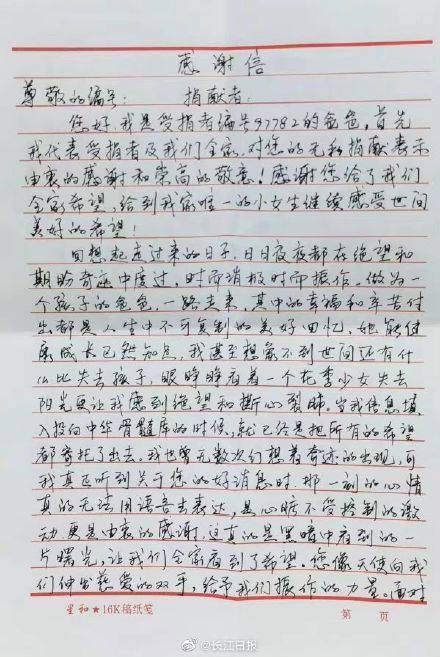 感谢信
尊敬的编号： 捐献者：
您好，我是受捐者编号97782的爸爸，首先
我代表受捐者及我们全家，对您的无私捐献表示
由衷的感谢和崇高的敬意！感谢您给了我们
全家希望，给到我家唯一的小女生继续感受世间
美好的希望！
回想起度过来的日子，日日夜夜都在绝望和
期盼奇迹中度过，时而消极时而振作。做为一
个孩子的爸爸，一路走来，其中的幸福和辛苦付
出都是人生中不可复制的美好回忆，她能健
康成长已然知足，我甚至想象不到世间还有什
么比失去孩子，眼睁睁看着一个花季少女失去
阳光更让我感到绝望和撕心裂肺。当我信息填
入投向中华骨髓库的时候，就已经是把所有的希望
都寄托了出去，我也曾无数次幻想着奇迹的出现，可
我真正听到关于您的好消息时，那一刻的心情
真的无法用语言去表达，是心脏不受控制的激
动，更是由衷的感谢，这真的是黑暗中看到的一
片曙光，让我们全家看到了希望。您像天使向我
们伸出慈爱的双手，给予我们振作的力量。面对
星和★16K稿纸笔
第 页
@长江日报